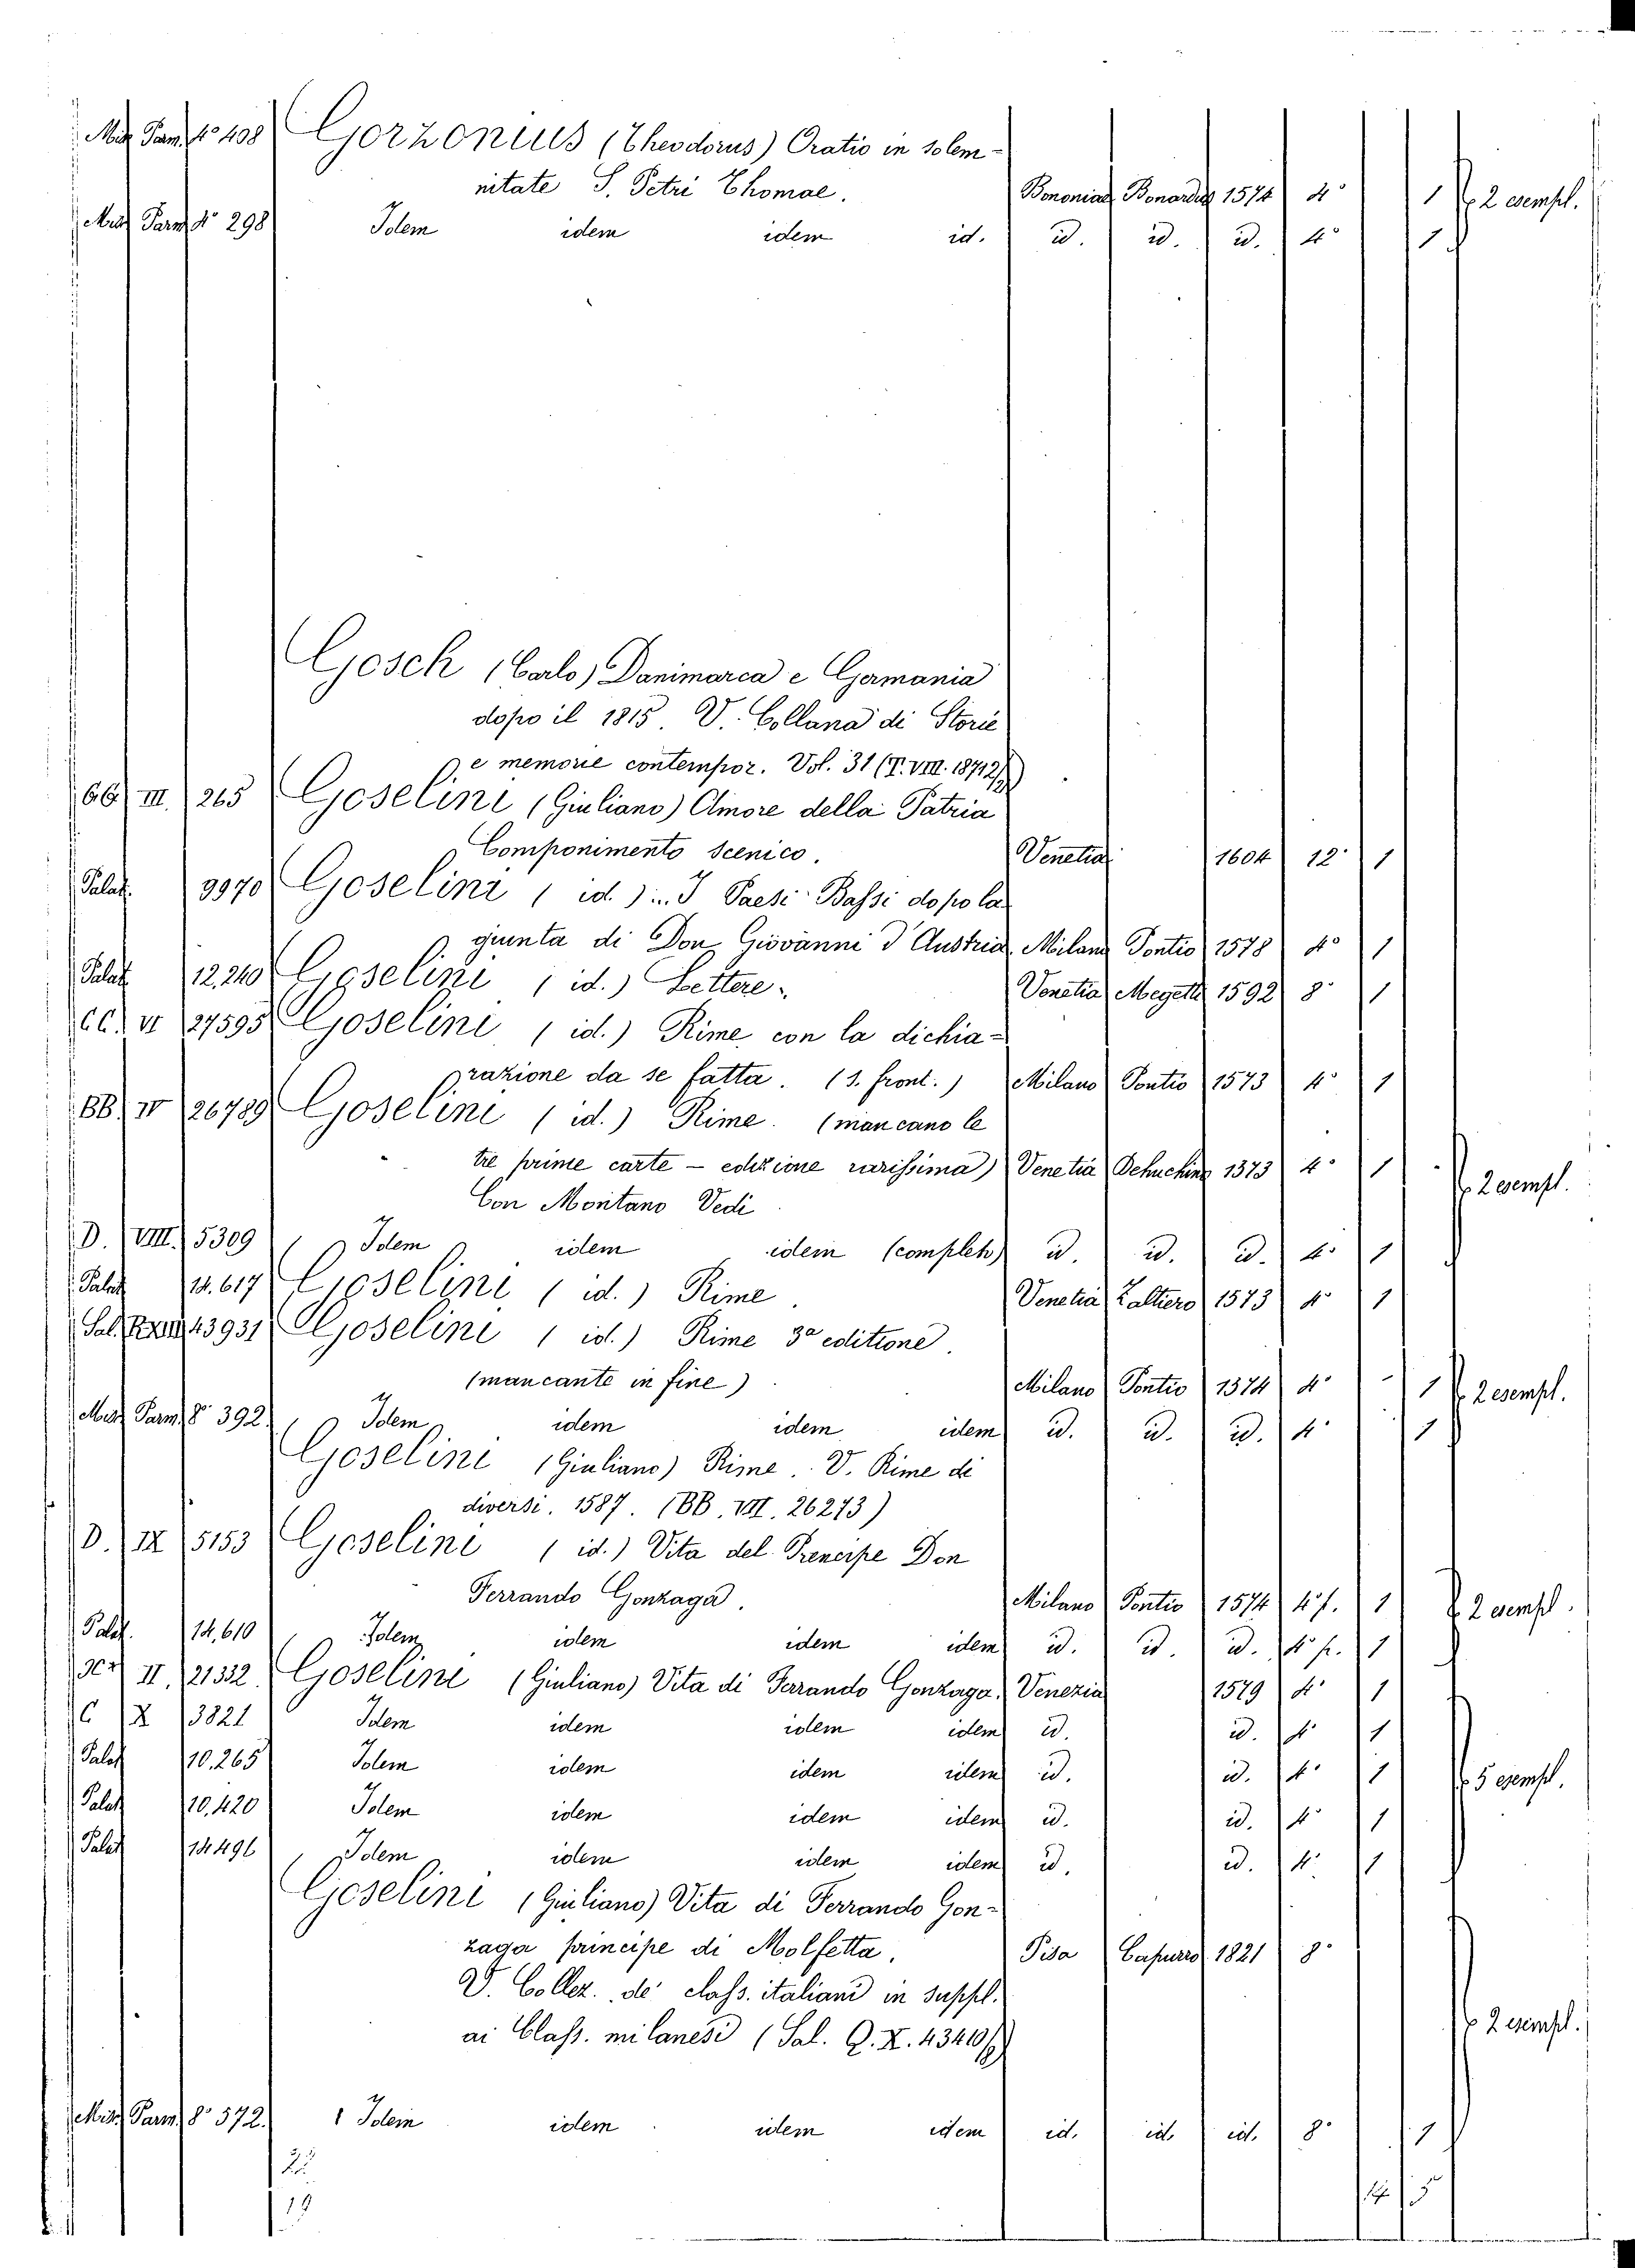 Misc. Parm. 4° 408 Gorzonius (Theodorus) Oratio in solem-
nitate S. Petri Thomae. Bononiae Bonardus 1574 4° 1 2 esempl.
Misc. Parm. 4° 298 Idem idem idem id. id. id. id. 4° 1
Gosch (Carlo) Danimarca e Germania
dopo il 1815. V. Collana di Storie
e memorie contempor. Vol. 31 (T. VIII. 18712/)
66 III. 265 Goselini (Giuliano) Amore della Patria
Componimento scenico. Venetia 1604 12° 1
Palat. 9970 Goselini (id.) I Paesi Bassi dopo la
giunta di Don Giovanni d'Austria. Milano Pontio 1578 4° 1
Palat. 12,240 Goselini (id.) Lettere. Venetia Megetti 1592 8° 1
CC. VI 27595 Goselini (id.) Rime con la dichia-
razione da se fatta. (s. front.) Milano Pontio 1573 4° 1
BB. IV 26789 Goselini (id.) Rime. (mancano le
tre prime carte - edizione rarissima) Venetia 1573 4° 1 2 esempl.
Con Montano Vedi
D. VIII. 5309 Idem idem idem (completo) id. id. id. 4° 1
Palat. 14.617 Goselini (id.) Rime. Venetia Zaltiero 1573 4° 1
Sal. 43931 Goselini (id.) Rime 3ª editione.
(mancante in fine) Milano Pontio 1574 4° 1 2 esempl.
Misc. Parm. 8° 392. Idem idem idem idem id. id. id. 4° 1
Goselini (Giuliano) Rime. V. Rime di
diversi. 1587. (BB. VII. 26273)
D. IX 5153 Goselini (id.) Vita del Prencipe Don
Ferrando Gonzaga. Milano Pontio 1574 4° p. 1 2 esempl.
Palat. 14,610 Idem idem idem idem id. id. id. 4° p. 1
II. 21332 Goselini (Giuliano) Vita di Ferrando Gonzaga. Venezia 1579 4° 1
C X 3821 Idem idem idem idem id. id. 4° 1
Palat. 10.265 Idem idem idem idem id. id. 4° 1 5 esempl.
Palat. 10,420 Idem idem idem idem id. id. 4° 1
Palat. 14496 Idem idem idem idem id. id. 4° 1
Goselini (Giuliano) Vita di Ferrando Gon-
zaga principe di Molfetta. Pisa Capurro 1821 8°
V. Collez. de' class. italiani in suppl.
ai Class. milanesi (Sal. Q. X. 43410/) 2 esempl.
Misc. Parm. 8° 572. 1 Idem idem idem idem id. id. id. 8° 1
2
19 5